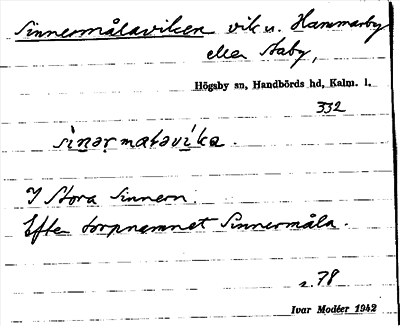 Sinnermålaviken vik u. Hammarby
eller Staby,
Högsby sn, Handbörds hd, Kalm. l.
332
sinərmatavika.
I Stora Sinnern.
Efter torpnamnet Sinnermåla.
s. 78
Ivar Modéer 1942